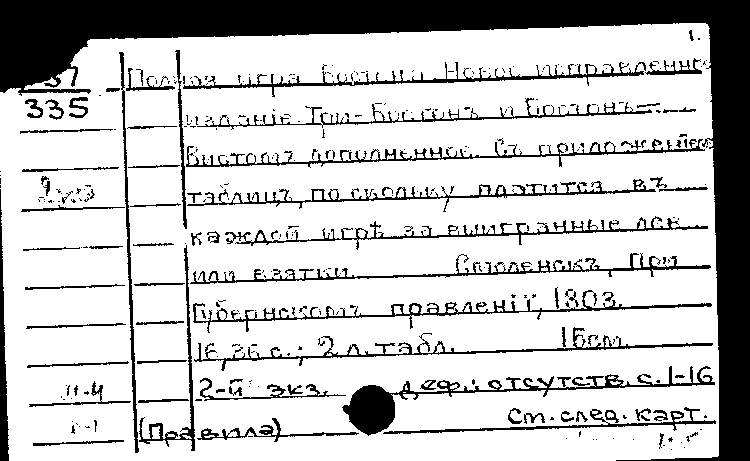 1.
37 Полная игра бостона Новое исправленное
335
изданіе Три-Бостонъ и Бостонъ-
Вистомъ дополненное. Съ приложеніемъ
2 экз таблицъ, по скольку платится въ
каждой игрѣ за выигранные лев
или взятки. Смоленскъ, При
Губернскомъ правленіи, 1803.
16, 36 с.; 2 л. табл. 15см.
2-й экз. деф.: отсутств. с. 1-16
(Правила) См. след. карт.